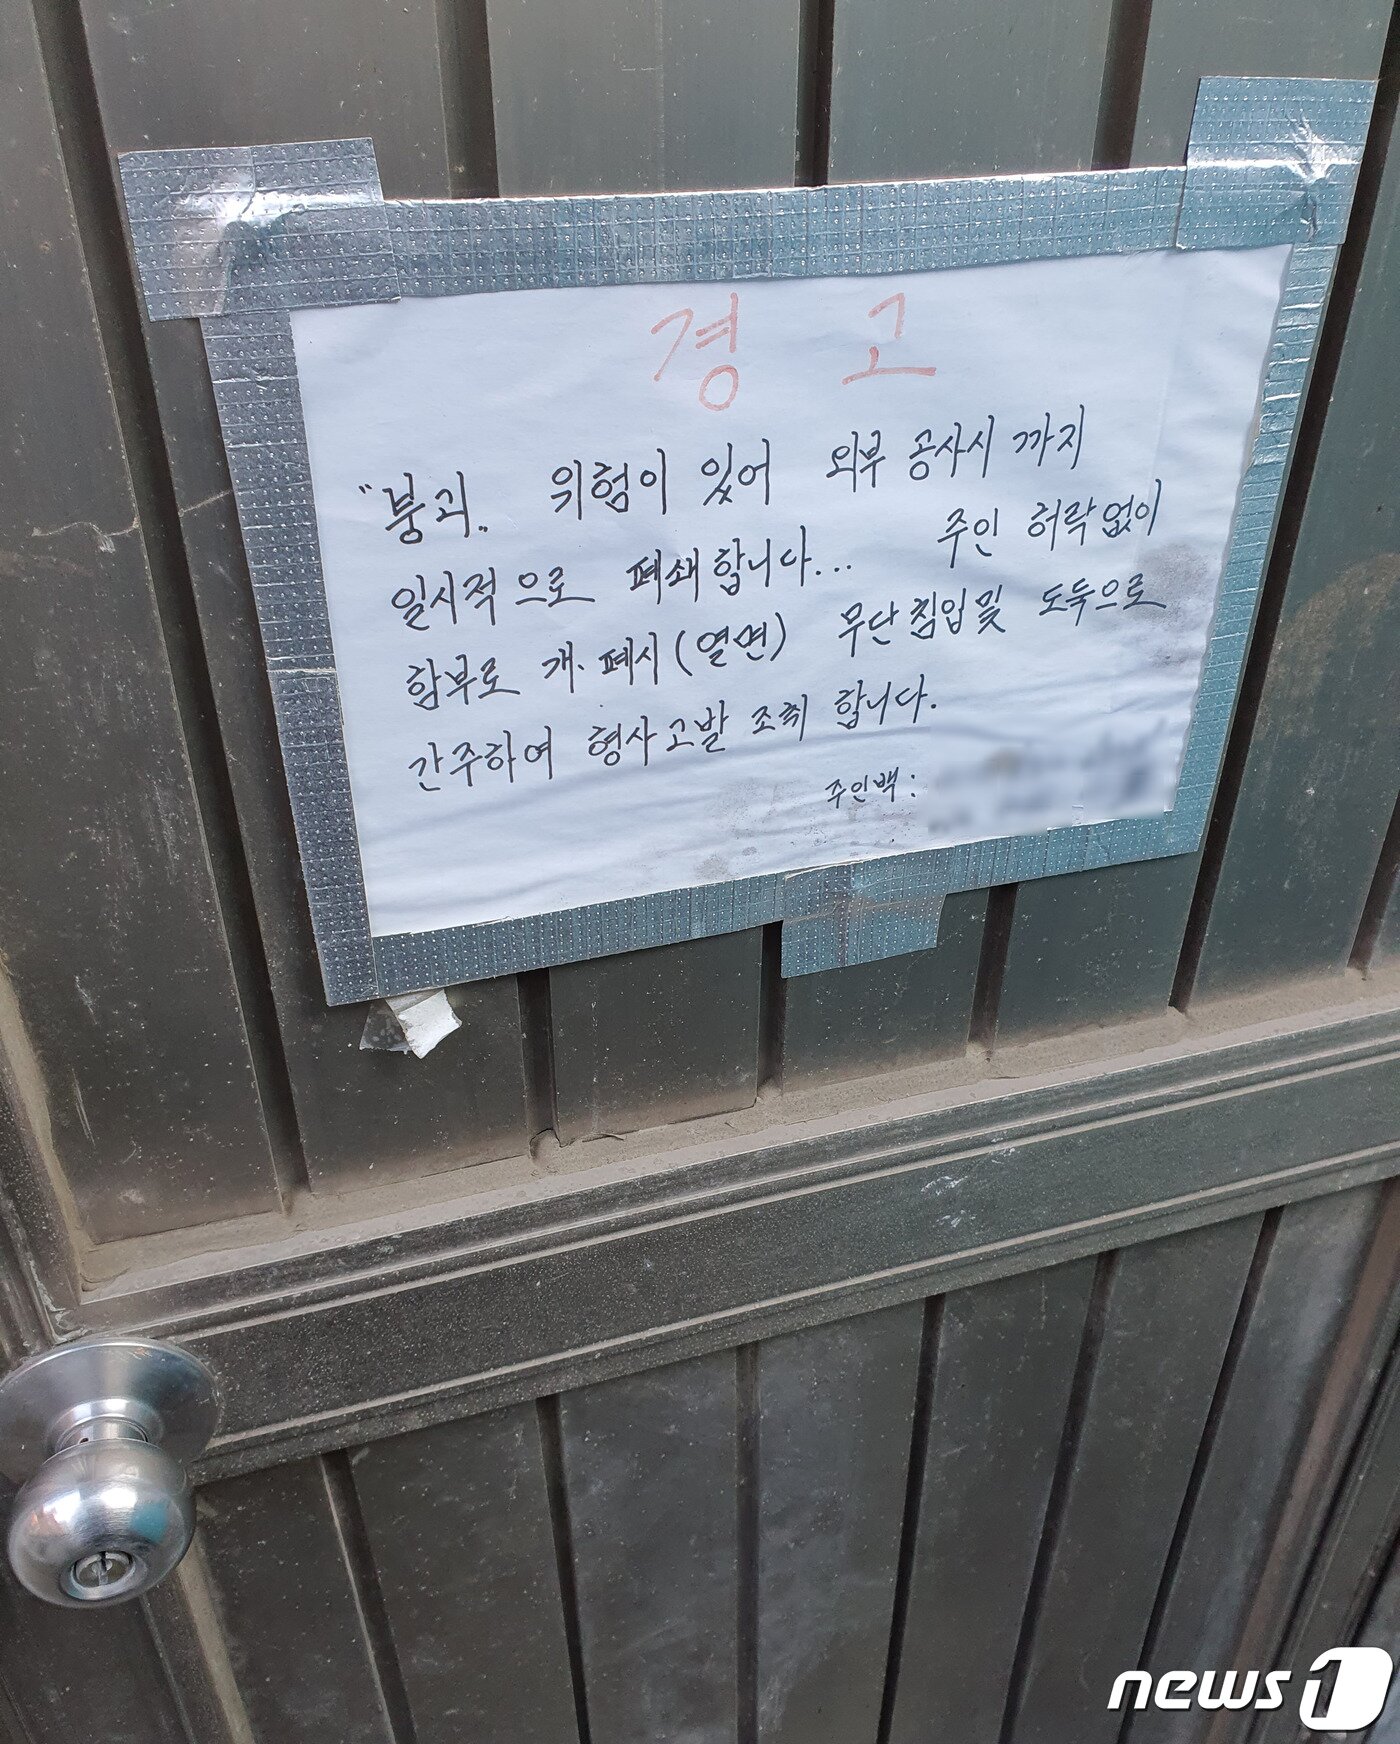 경 고
"붕괴" 위험이 있어 외부 공사시 까지
일시적으로 폐쇄합니다... 주인 허락없이
함부로 개·폐시(열면) 무단침입및 도둑으로
간주하여 형사고발 조취 합니다.
주인백:
news1